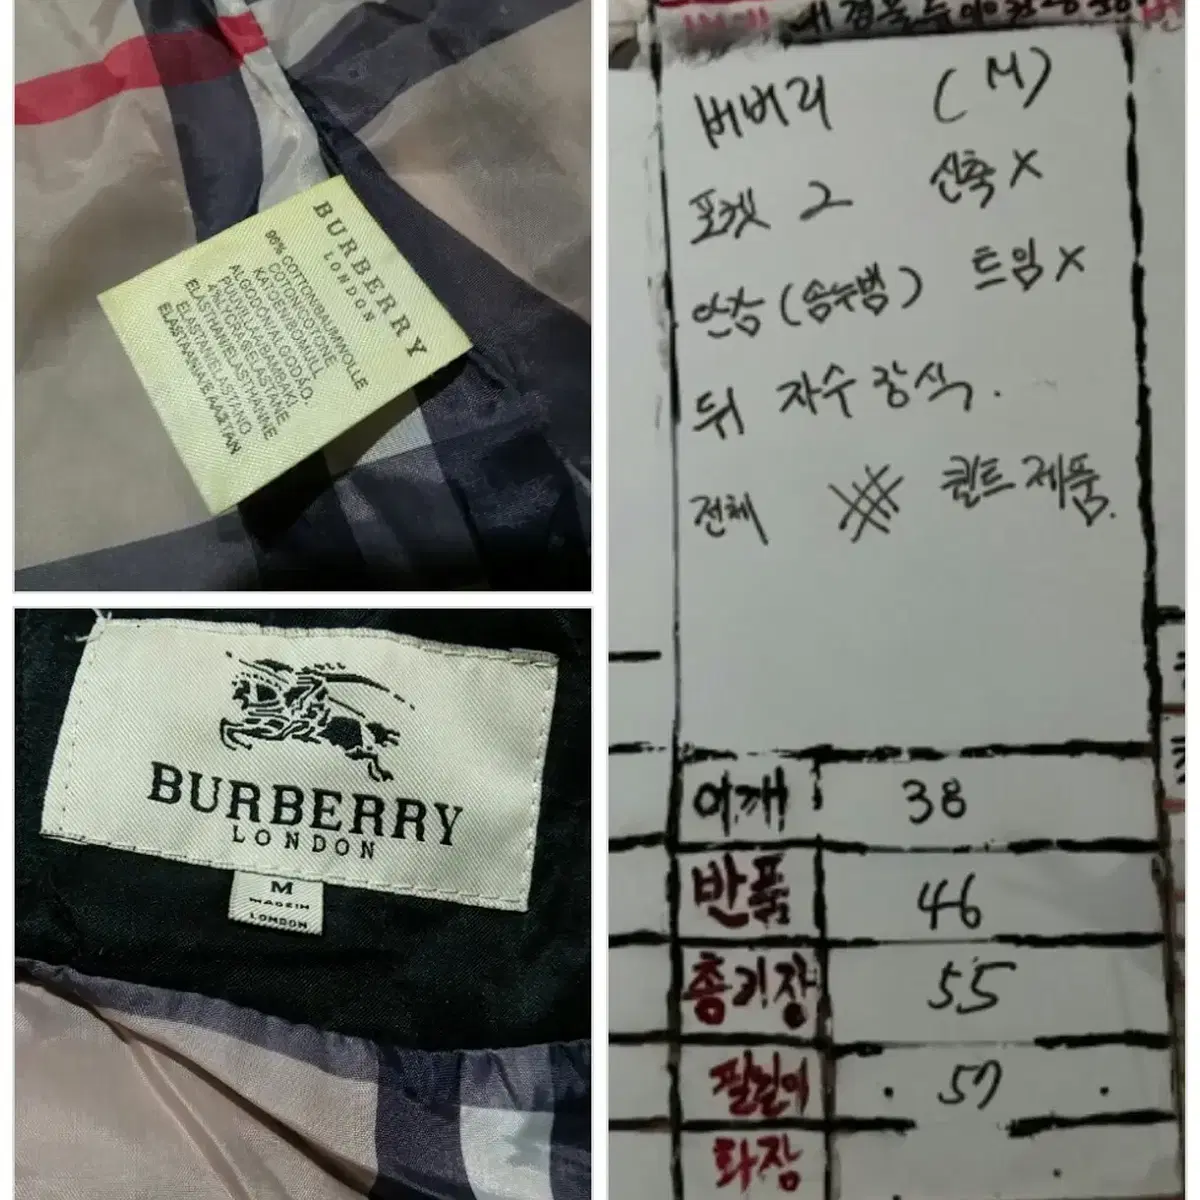 BURBERRY
LONDON
96% COTTON/BAUMWOLLE
COTON/COTONE
KATOEN/BOMULL
ALGODON/ALGODÃO.
PUUVILLA/BAMBAKI
4%LYCRA®ELASTANE
ELASTHAN/ELASTHANNE
ELASTANE/ELASTANO
ELASTAANIA/EΛAΣTAN
BURBERRY
LONDON
M
MADE IN
LONDON
버버리 (M)
포켓 2 신축 X
안감 (승누빔) 트임 X
뒤 자수 장식.
전체 퀼트 제품.
어깨 38
반품 46
총기장 55
팔길이 57
화장